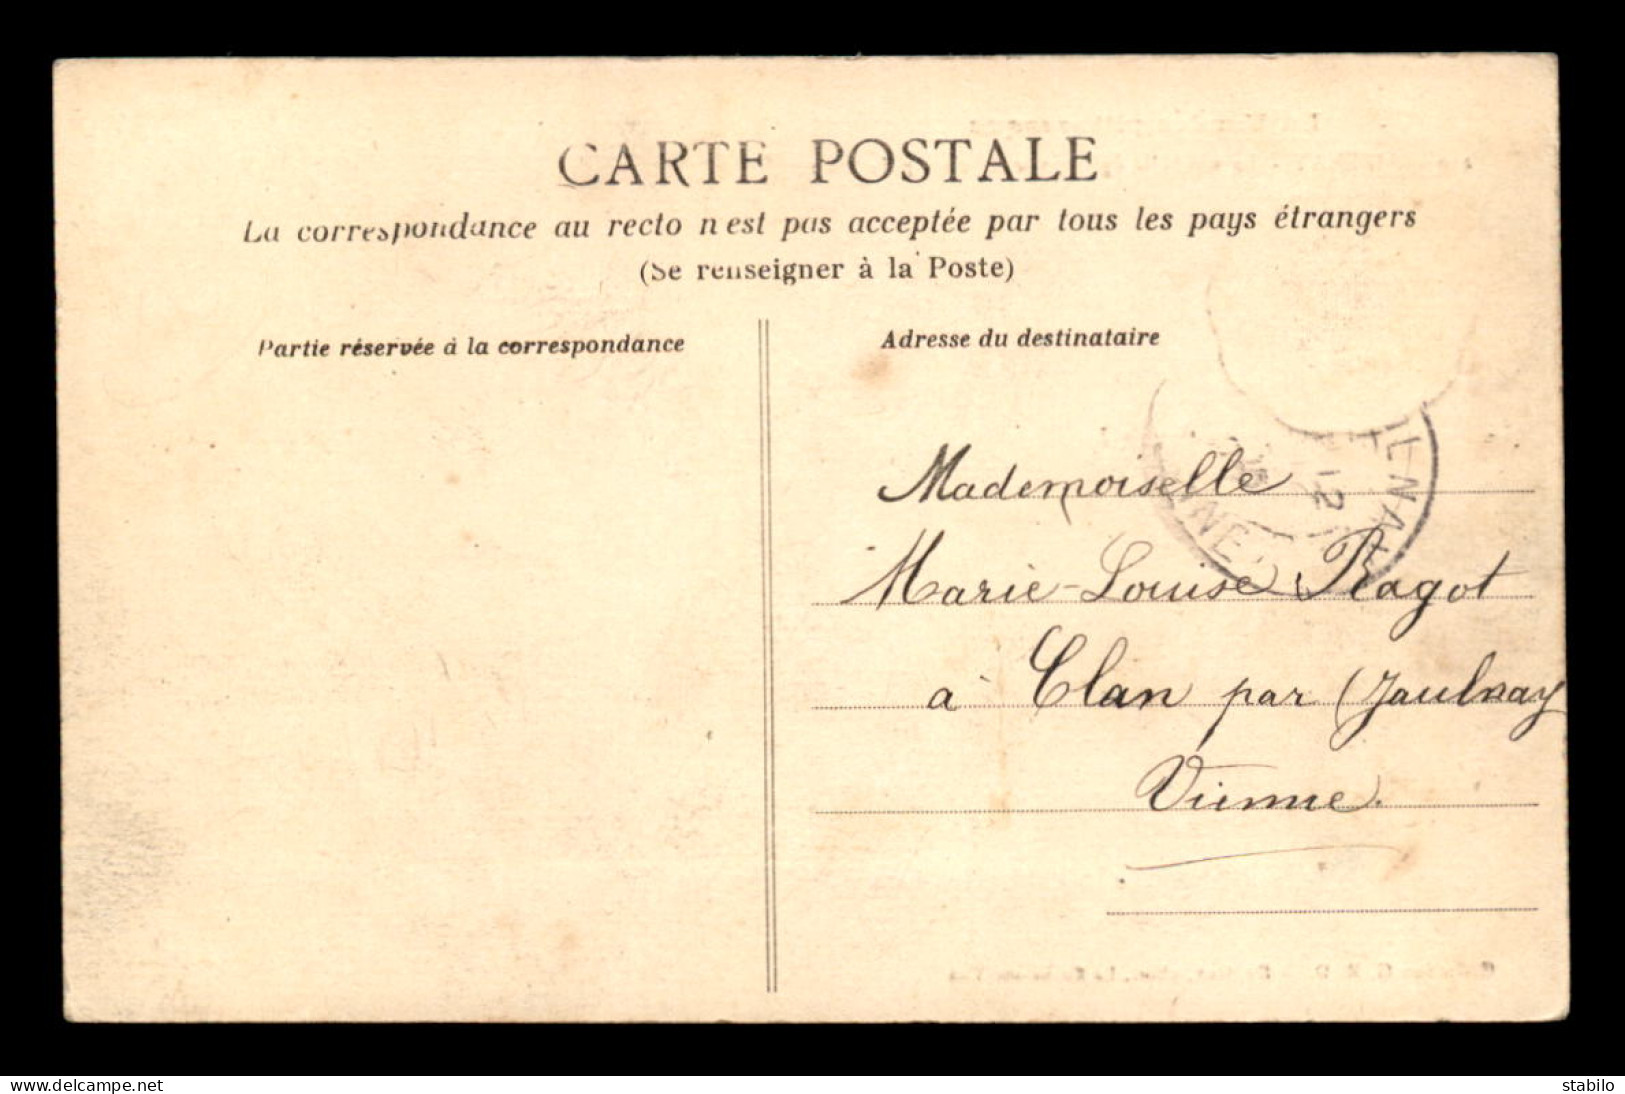 CARTE POSTALE
La correspondance au recto n'est pas acceptée par tous les pays étrangers
(Se renseigner à la Poste)
Partie réservée à la correspondance
Adresse du destinataire
12
Mademoiselle
Marie-Louise Ragot
à Clan par Jaulnay
Vienne.
delcampe.net
stabilo